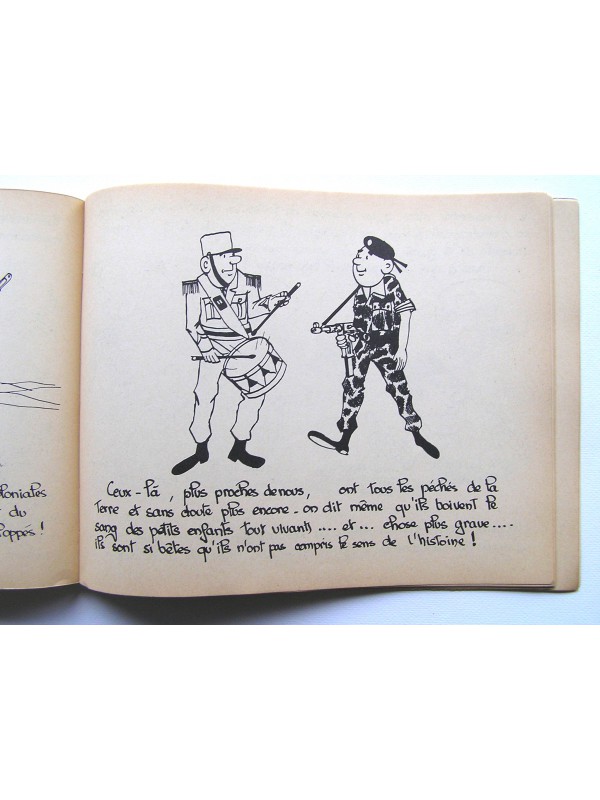 oloniales
du
oppés !
Ceux-là, plus proches de nous, ont tous les péchés de la
Terre et sans doute plus encore - on dit même qu'ils boivent le
sang des petits enfants tout vivants .... et ... chose plus grave ....
ils sont si bêtes qu'ils n'ont pas compris le sens de l'histoire !